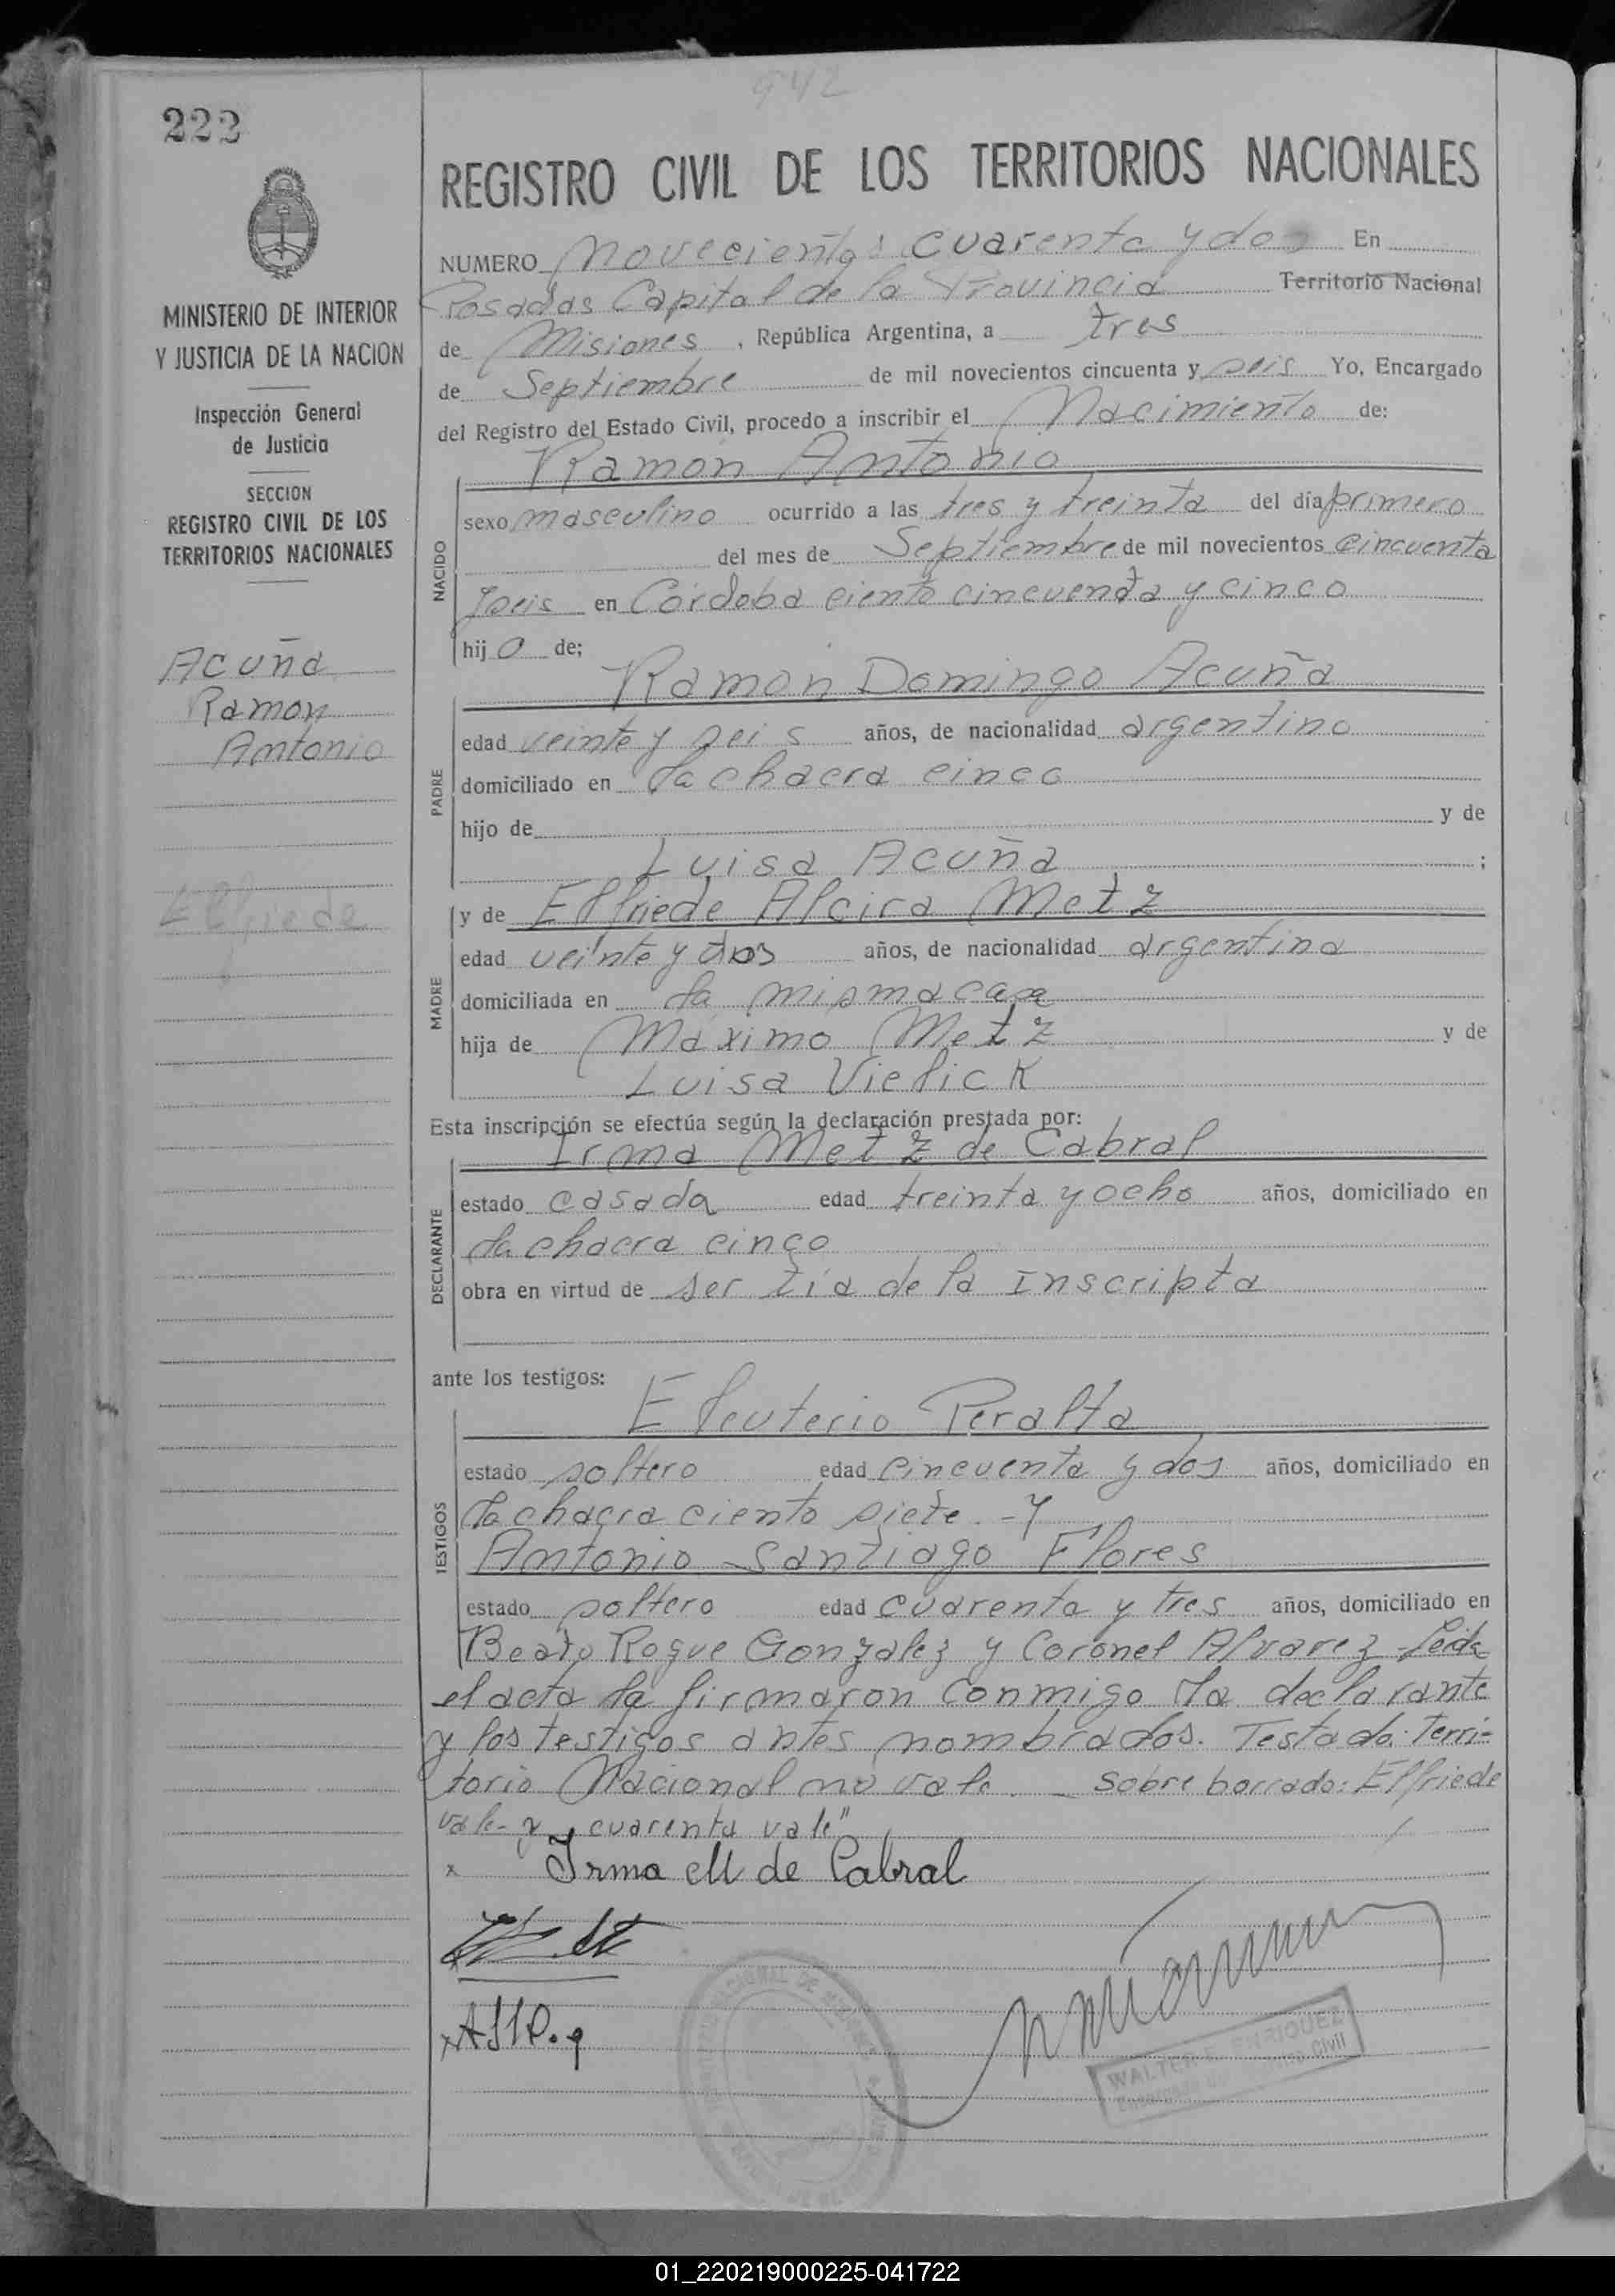 942
222
REGISTRO CIVIL DE LOS TERRITORIOS NACIONALES
NUMERO Novecientos cuarenta y dos En
Posadas Capital de la Provincia Territorio Nacional
de Misiones, República Argentina, a tres
de Septiembre de mil novecientos cincuenta y seis Yo, Encargado
del Registro del Estado Civil, procedo a inscribir el Nacimiento de:
MINISTERIO DE INTERIOR
Y JUSTICIA DE LA NACION
Inspección General
de Justicia
SECCION
REGISTRO CIVIL DE LOS
TERRITORIOS NACIONALES
Acuña
Ramon
Antonio
Elfriede
NACIDO
Ramon Antonio
sexo masculino ocurrido a las tres y treinta del día primero
del mes de Septiembre de mil novecientos cincuenta
y seis en Córdoba ciento cincuenta y cinco
hijo de;
PADRE
Ramon Domingo Acuña
edad veinte y seis años, de nacionalidad argentino
domiciliado en la chacra cinco
hijo de y de
Luisa Acuña ;
MADRE
y de Elfriede Alcira Metz
edad veinte y dos años, de nacionalidad argentina
domiciliada en la misma casa
hija de Maximo Metz y de
Luisa Vielick
Esta inscripción se efectúa según la declaración prestada por:
DECLARANTE
Irma Metz de Cabral
estado casada edad treinta y ocho años, domiciliado en
la chacra cinco
obra en virtud de ser tía de la inscripta
ante los testigos:
TESTIGOS
Eleuterio Peralta
estado soltero edad cincuenta y dos años, domiciliado en
la chacra ciento siete.-y
Antonio Santiago Flores
estado soltero edad cuarenta y tres años, domiciliado en
Beato Roque Gonzalez y Coronel Alvarez - Leida
el acta la firmaron conmigo la declarante
y los testigos antes nombrados. Testado: Terri-
torio Nacional no vale. - sobre borrado: Elfriede
vale- y cuarenta vale"
x Irma M de Cabral
WALTER E. ENRIQUEZ
Civil
01_220219000225-041722